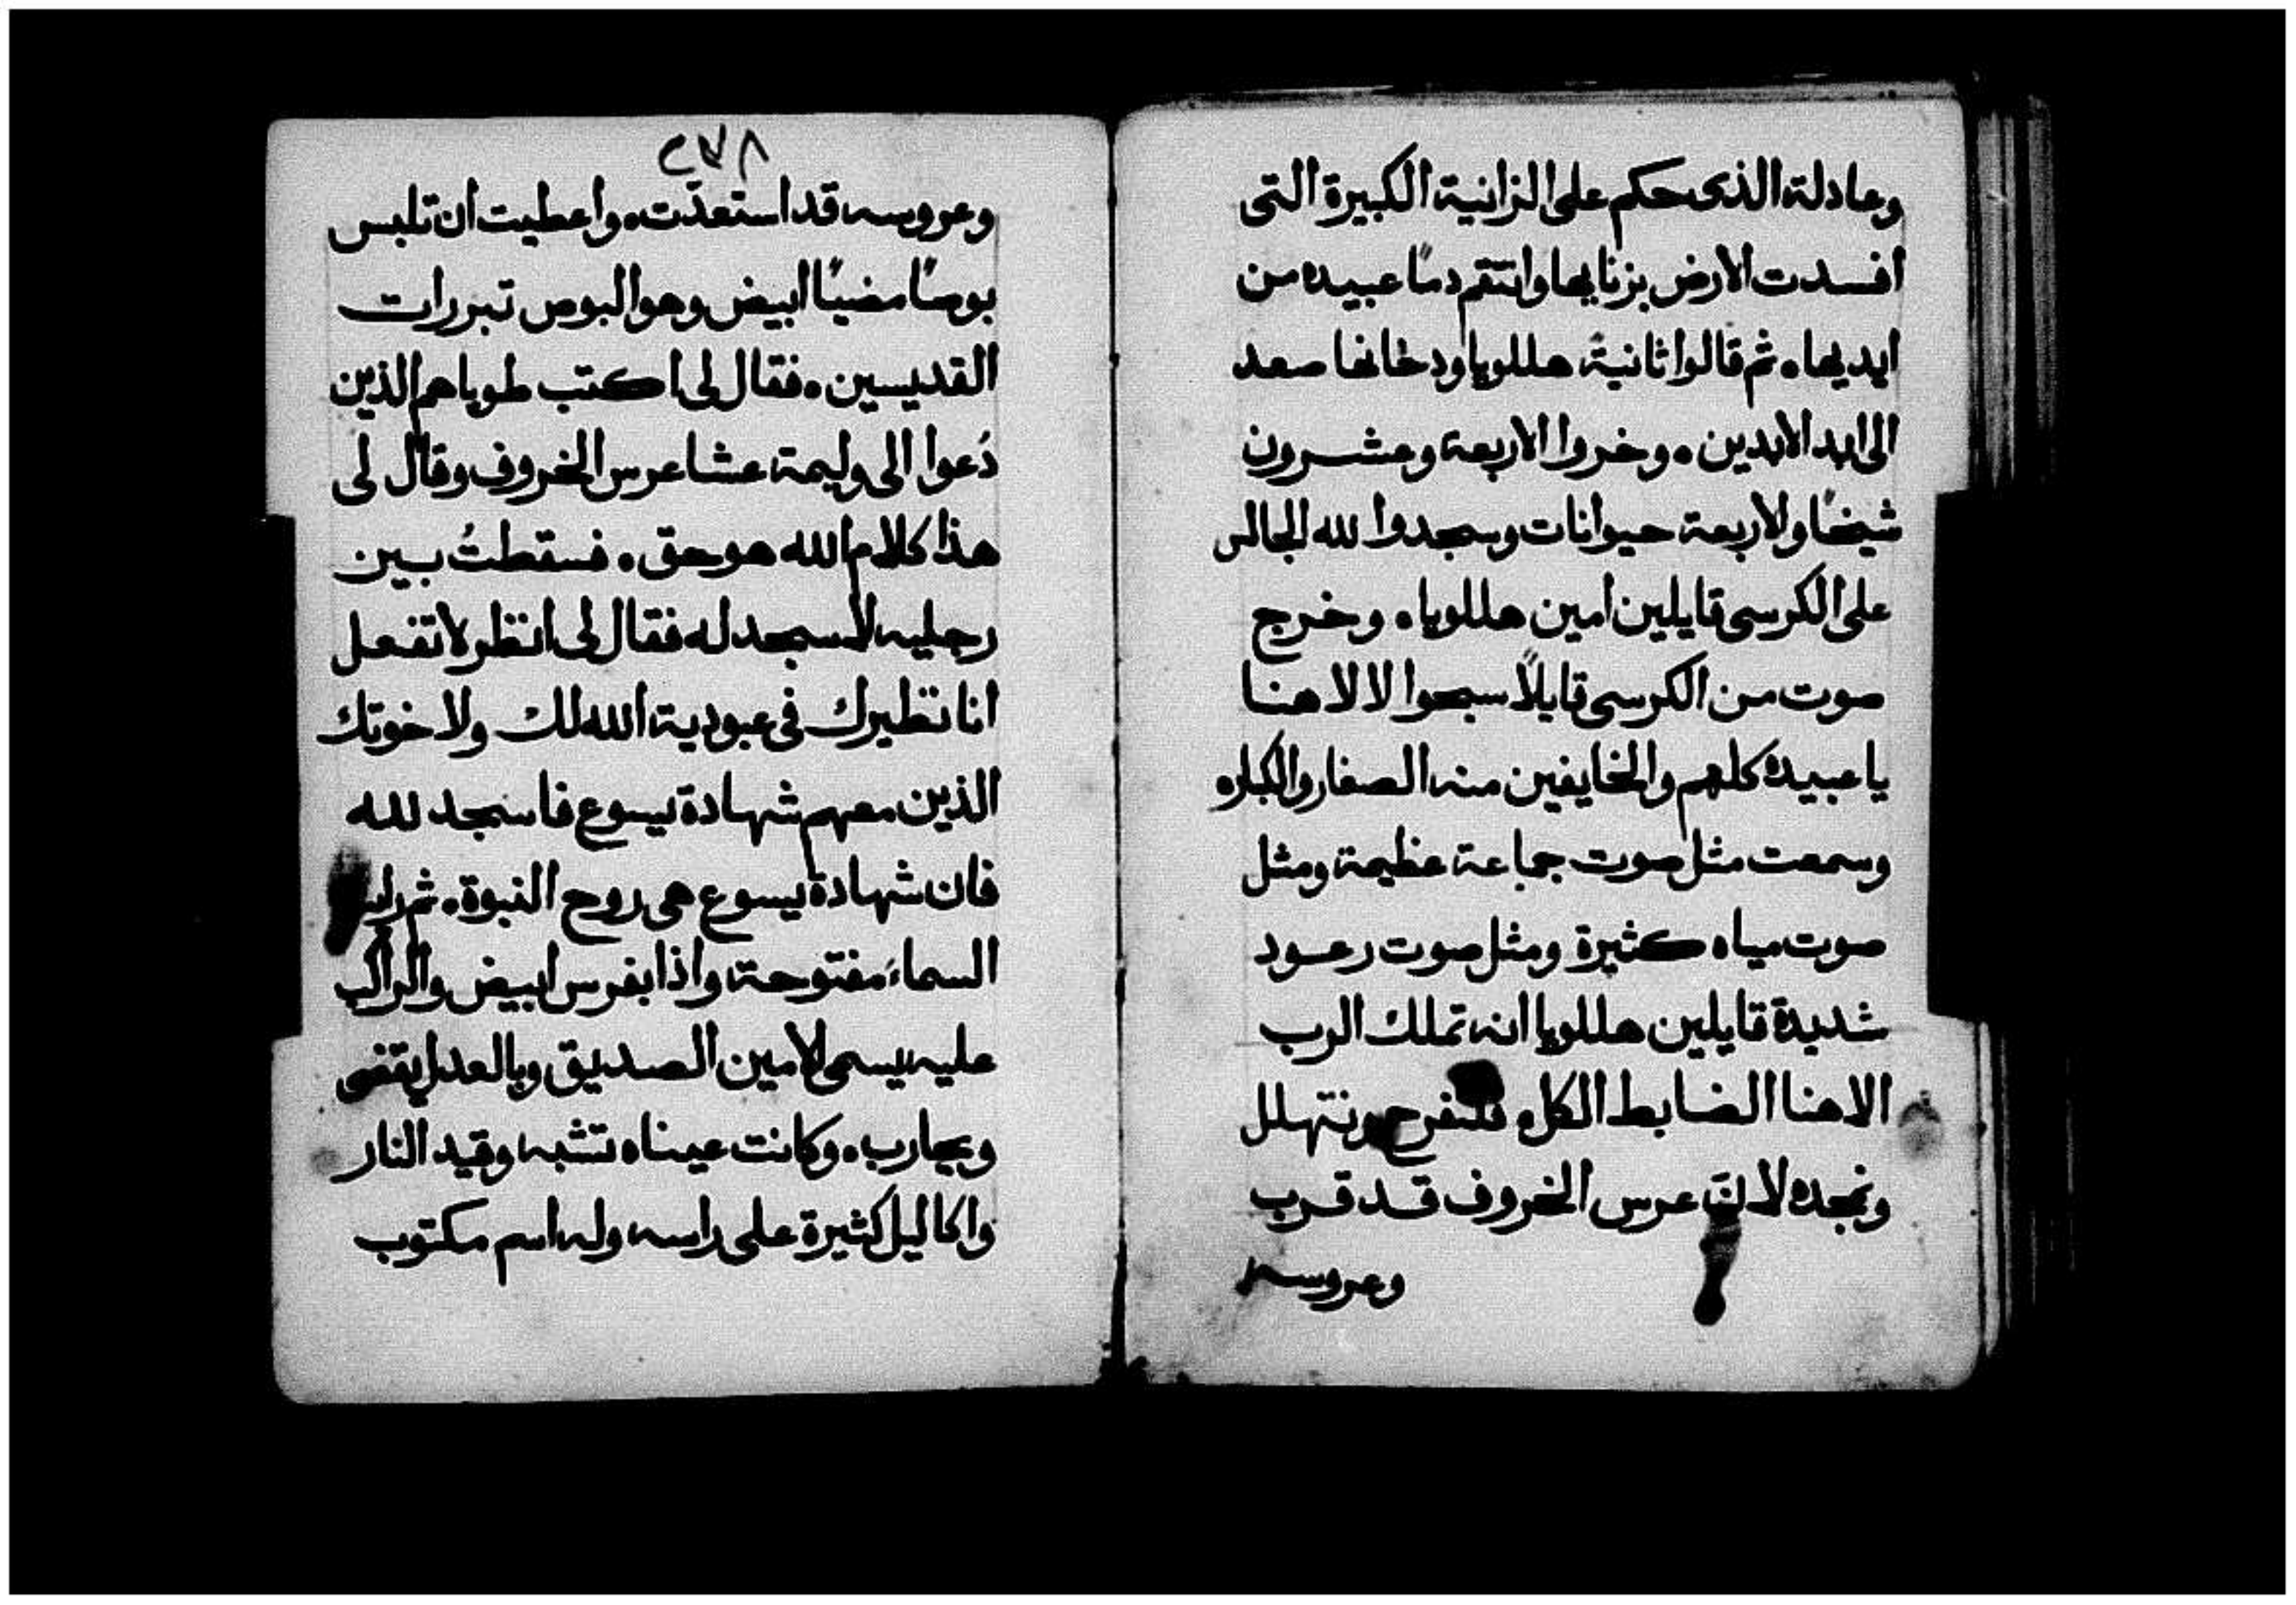 وعادلة الذى حكم على الزانية الكبيرة التى
افسدت الارض بزنايها وانتقم دمًا عبيده من
ايديها. ثم قالوا ثانيةً هللويا ودخانها صعد
الى ابد الابدين. وخروا الاربعة وعشرون
شيخًا والاربعة حيوانات وسجدوا لله الجالس
على الكرسى قايلين امين هللويا. وخرج
صوت من الكرسى قايلاً سبحوا لالاهنا
يا عبيده كلهم والخايفين منه الصغار والكبار.
وسمعت مثل صوت جماعة عظيمة ومثل
صوت مياه كثيرة ومثل صوت رعود
شديدة قايلين هللويا انه تملك الرب
الاهنا الضابط الكل. فلنفرح ونتهلل
ونمجده لان عرس الخروف قد قرب
وعروسه
٢٧٨
وعروسه قد استعدّت. واعطيت ان تلبس
بوصًا مضيًا ابيض وهو البوص تبررات
القديسين. فقال لى اكتب طوباهم الذين
دُعوا الى وليمة عشا عرس الخروف وقال لى
هذا كلام الله هو حق. فسقطتُ بين
رجليه لأسجد له فقال لى انظر لا تفعل
انا نظيرك فى عبودية الله لك ولاخوتك
الذين معهم شهادة يسوع فاسجد لله
فان شهادة يسوع هى روح النبوة. ثم رايت
السماء مفتوحة واذا بفرس ابيض والراكب
عليه يسمى الامين الصديق وبالعدل يقضى
ويحارب. وكانت عيناه تشبه وقيد النار
واكاليل كثيرة على راسه وله اسم مكتوب